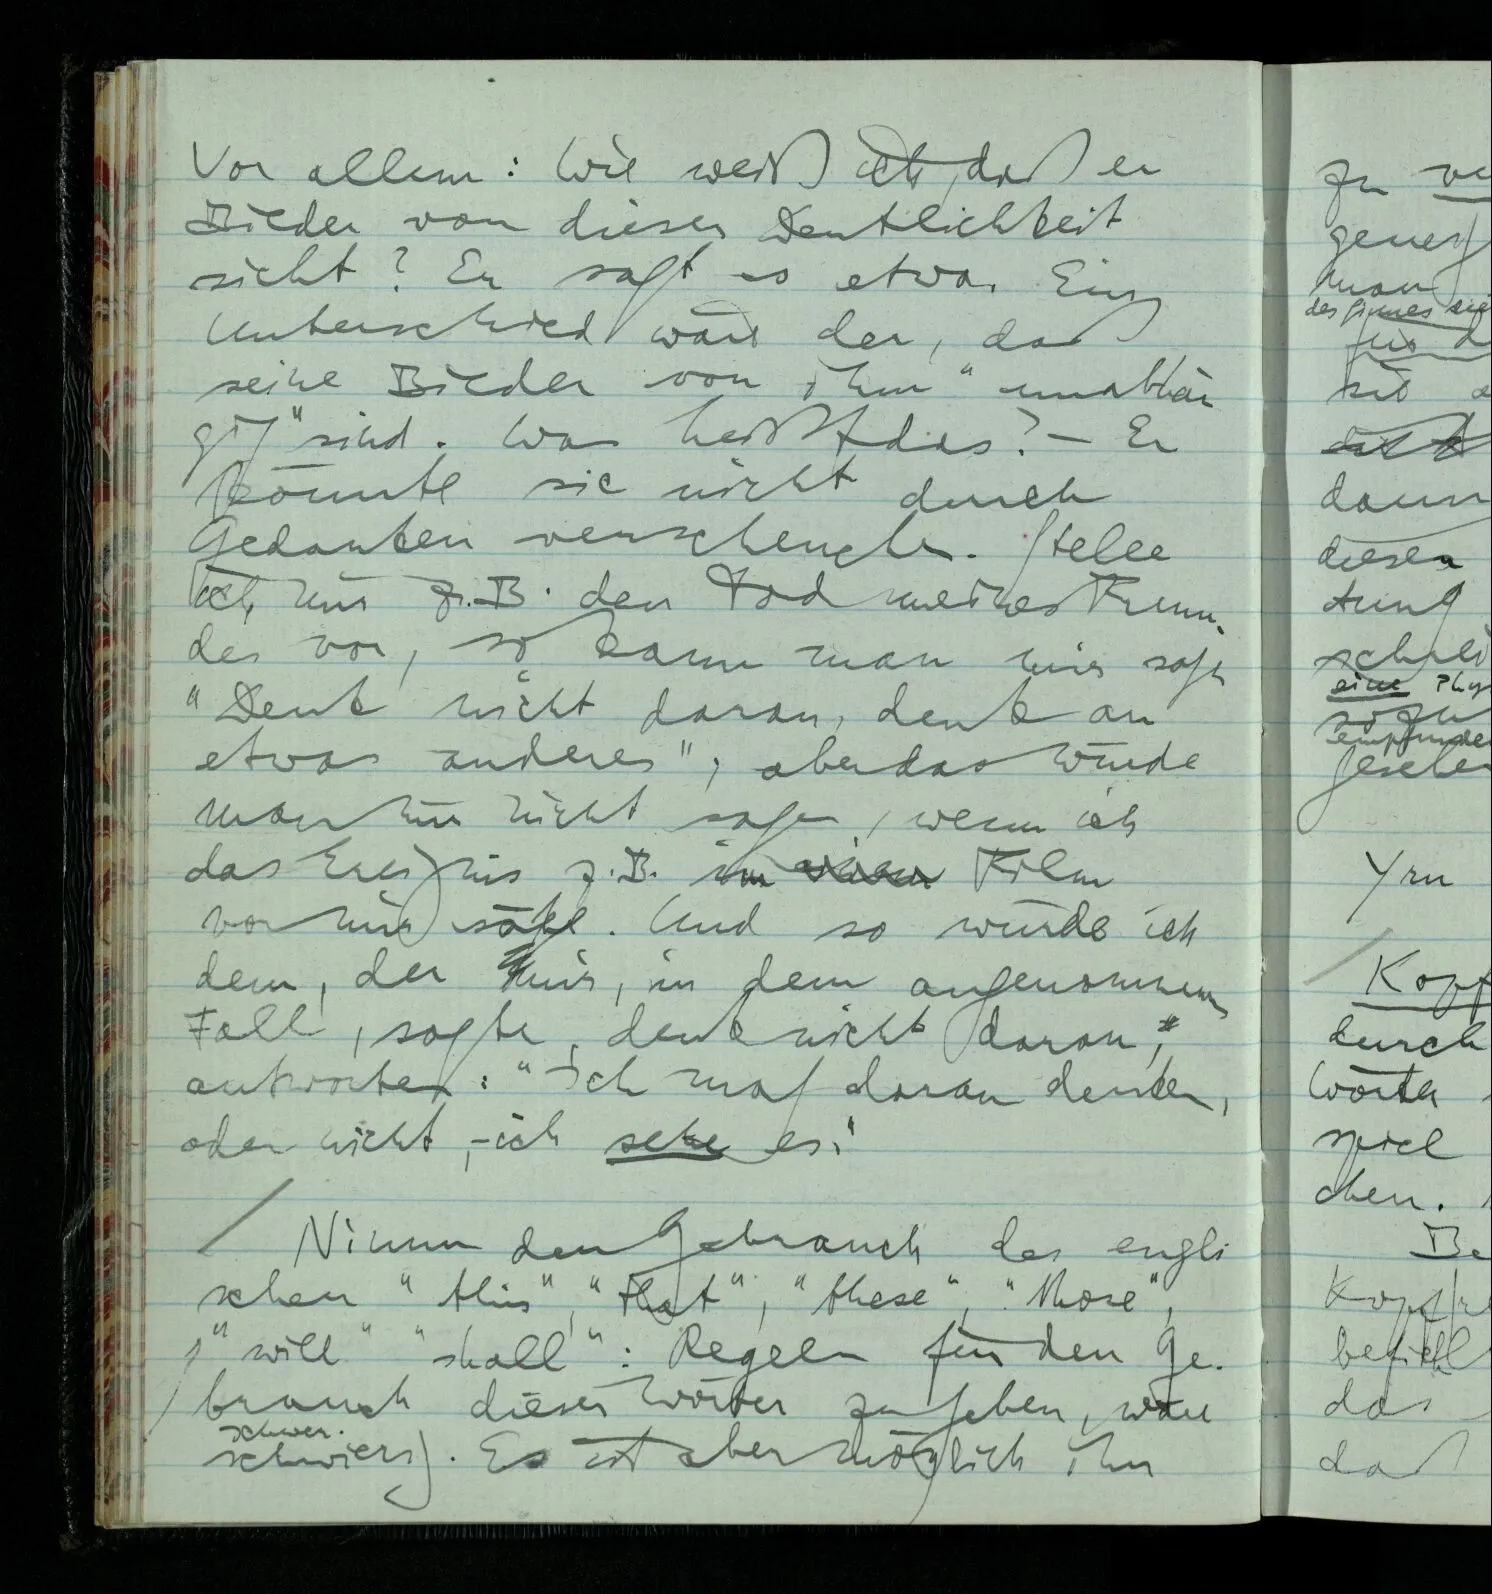 Vor allem: Wie weiß ich, daß er
Bilder von dieser Deutlichkeit
sieht? Er sagt so etwas. Ein
Unterschied wäre der, daß
seine Bilder von ihm "unabhän
gig" sind. Was heißt das? – Er
könnte sie nicht durch
Gedanken verscheuchen. Stelle
ich mir z.B. den Tod meines Freun-
des vor, so kann man mir sagen
"Denk nicht daran, denk an
etwas anderes"; aber das würde
man mir nicht sagen, wenn ich
das Ereignis z.B. im Film
vor mir sähe. Und so würde ich
dem, der mir, in dem angenommenen
Fall, sagte, denk nicht daran,"
antworten: "Ich mag daran denken,
oder nicht, – ich sehe es."
/ Nimm den Gebrauch des engli
schen "this", "that", "these", "those",
"will" "shall": Regeln für den Ge-
brauch dieser Wörter zu geben, wäre
schwer.
schwierig. Es ist aber möglich ihn
zu
man
des Sinnes
für
sie
dann
diesen
eine
Kopf
durch
Wörter
spiel
chen.
das
daß